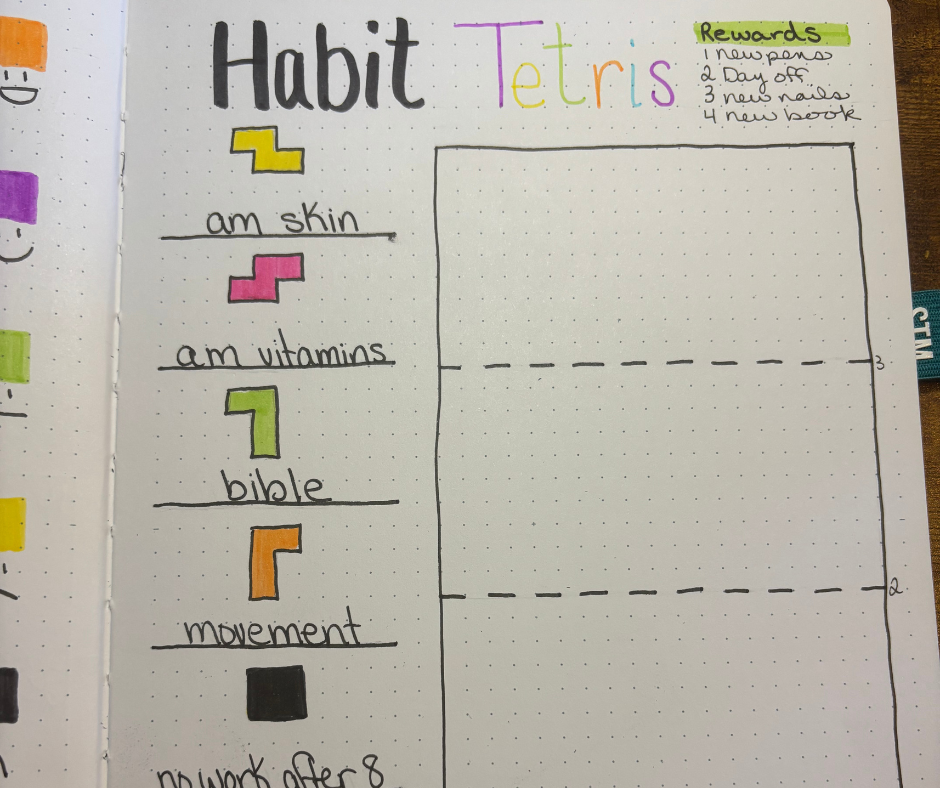 Habit Tetris
Rewards
1 new pens
2 Day off
3 new nails
4 new book
am skin
am vitamins
bible
movement
no work after 8
3
2
STM